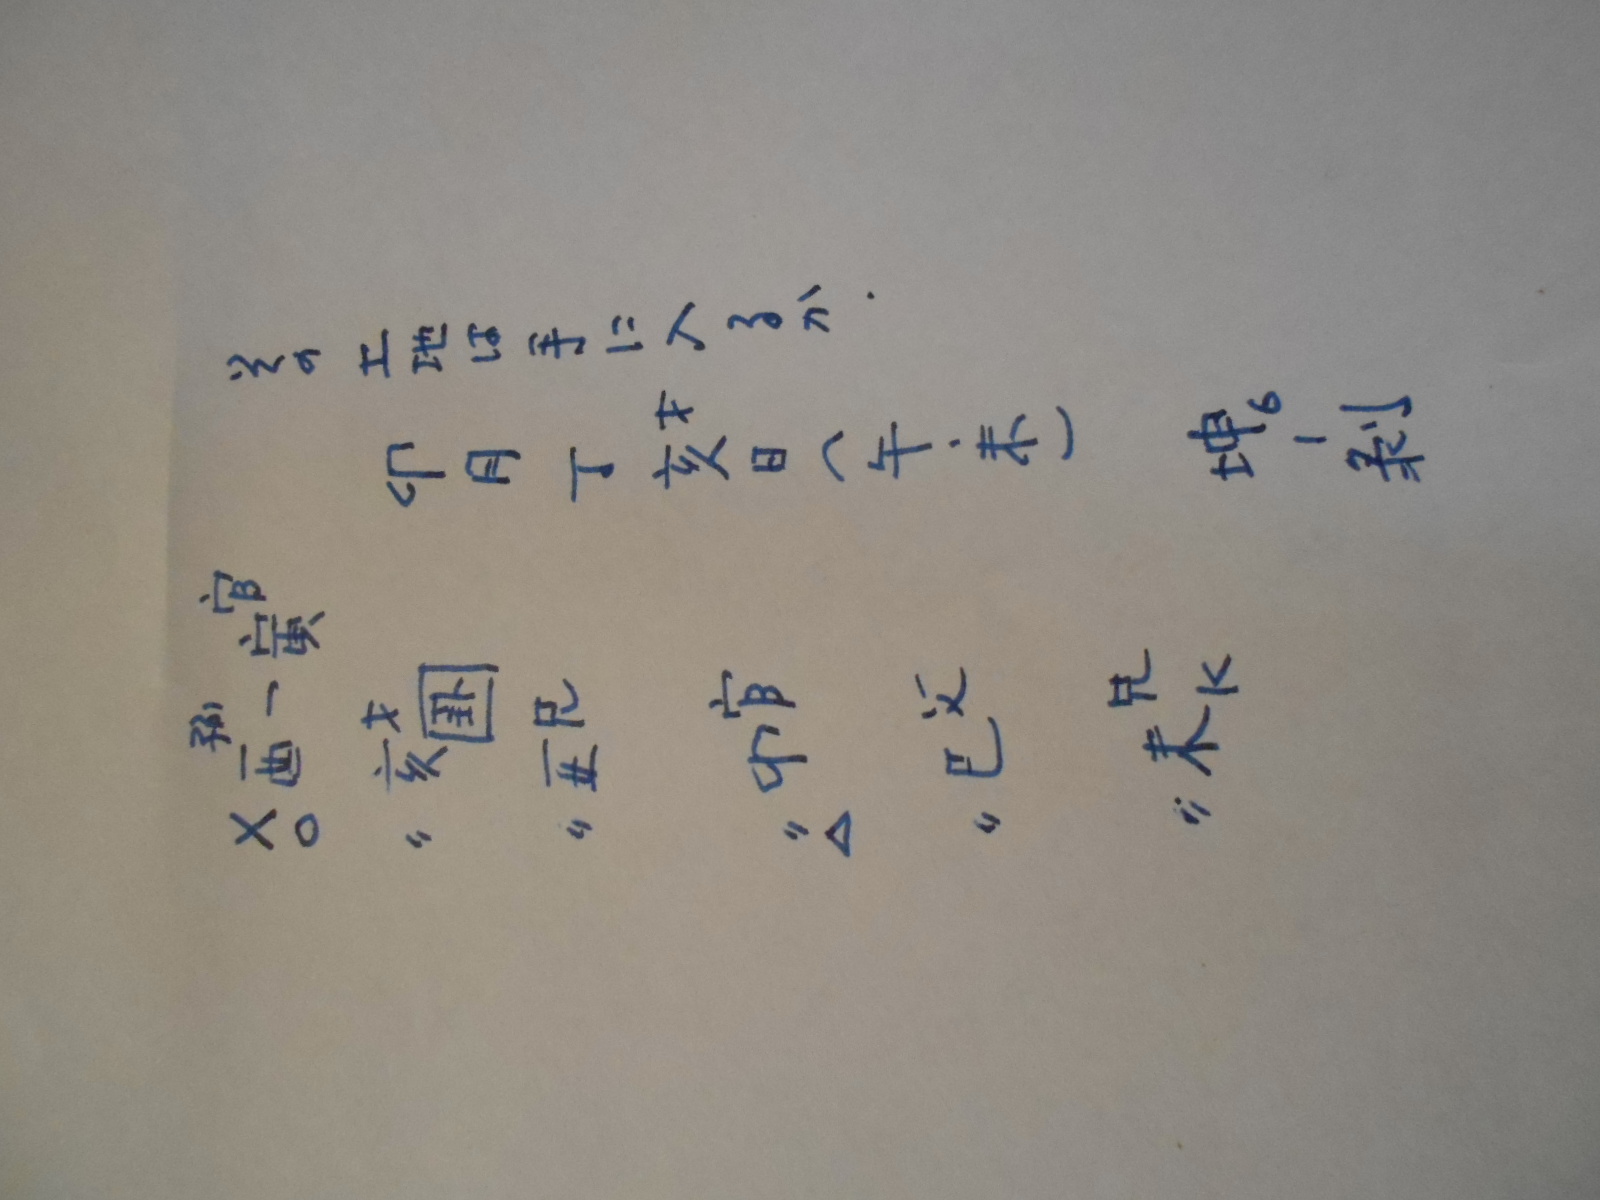 その土地は手に入るか.
卯月丁亥才日(午・未) 坤6一剥
X○酉孫一寅官
〃亥才卦
〃丑兄
〃△卯官
〃巳父
〃未兄K